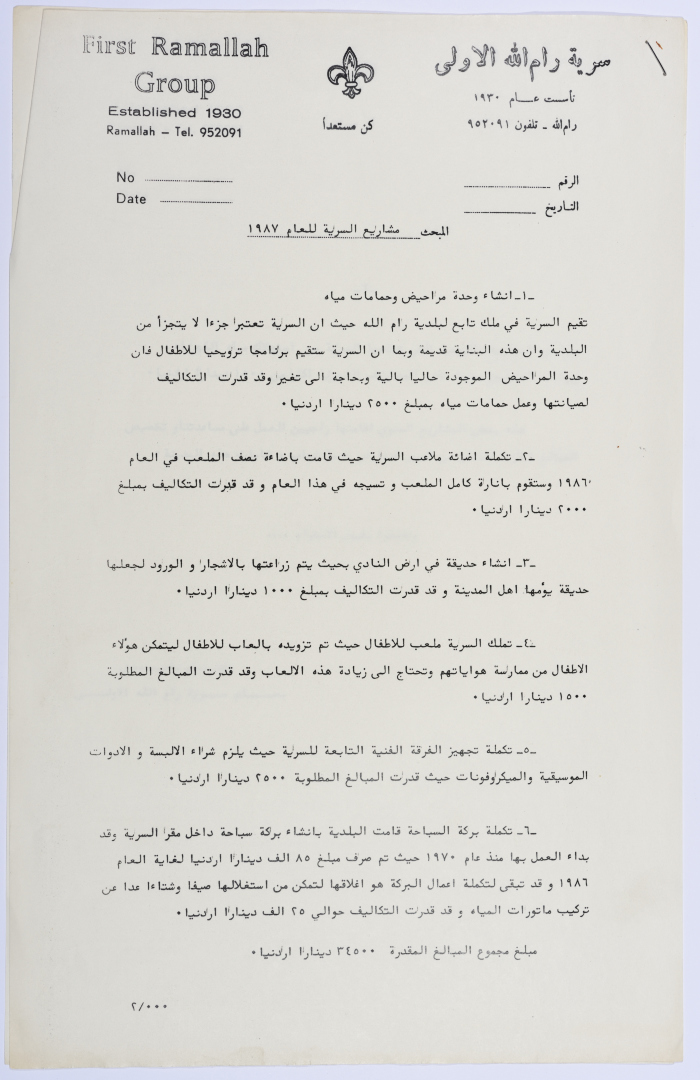 First Ramallah
Group
Established 1930
Ramallah – Tel. 952091
كن مستعدا
سرية رام الله الاولى
تأسست عـــام ١٩٣٠
رام الله ـ تلفون ٩٥٢٠٩١
No ........................
Date ........................
الرقم ........................
التاريخ ........................
المبحث مشاريع السرية للعام ١٩٨٧
ـ١ـ انشاء وحدة مراحيض وحمامات مياه
تقيم السرية في ملك تابع لبلدية رام الله حيث ان السرية تعتبر جزءا لا يتجزأ من
البلدية وان هذه البناية قديمة وبما ان السرية ستقيم برنامجا ترويحيا للاطفال فان
وحدة المراحيض الموجودة حاليا بالية وبحاجة الى تغير وقد قدرت التكاليف
لصيانتها وعمل حمامات مياه بمبلغ ٢٥٠٠ دينارا اردنيا٠
ـ٢ـ تكملة اضائة ملاعب السرية حيث قامت باضاءة نصف الملعب في العام
١٩٨٦ وستقوم بانارة كامل الملعب و تسيجه في هذا العام و قد قدرت التكاليف بمبلغ
٢٠٠٠ دينارا اردنيا٠
ـ٣ـ انشاء حديقة في ارض النادي بحيث يتم زراعتها بالاشجار و الورود لجعلها
حديقة يؤمها اهل المدينة و قد قدرت التكاليف بمبلغ ١٠٠٠ دينارا اردنيا٠
ـ٤ـ تملك السرية ملعب للاطفال حيث تم تزويده بالعاب للاطفال ليتمكن هؤلاء
الاطفال من ممارسة هواياتهم وتحتاج الى زيادة هذه الالعاب وقد قدرت المبالغ المطلوبة
١٥٠٠ دينارا اردنيا٠
ـ٥ـ تكملة تجهيز الفرقة الفنية التابعة للسرية حيث يلزم شراء الالبسة و الادوات
الموسيقية والميكروفونات حيث قدرت المبالغ المطلوبة ٢٥٠٠ دينارا اردنيا٠
ـ٦ـ تكملة بركة السباحة قامت البلدية بانشاء بركة سباحة داخل مقر السرية وقد
بداء العمل بها منذ عام ١٩٧٠ حيث تم صرف مبلغ ٨٥ الف دينارا اردنيا لغاية العام
١٩٨٦ و قد تبقى لتكملة اعمال البركة هو اغلاقها لتمكن من استغلالها صيفا وشتاءا عدا عن
تركيب ماتورات المياه و قد قدرت التكاليف حوالي ٢٥ الف دينارا اردنيا٠
مبلغ مجموع المبالغ المقدرة ٣٤٥٠٠ دينارا اردنيا٠
٢/٠٠٠